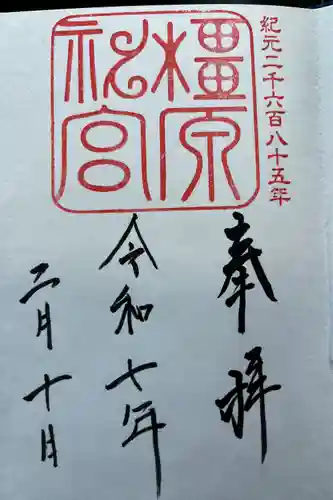 紀元二千六百八十五年
橿原
神宮
奉拝
令和七年
二月十日